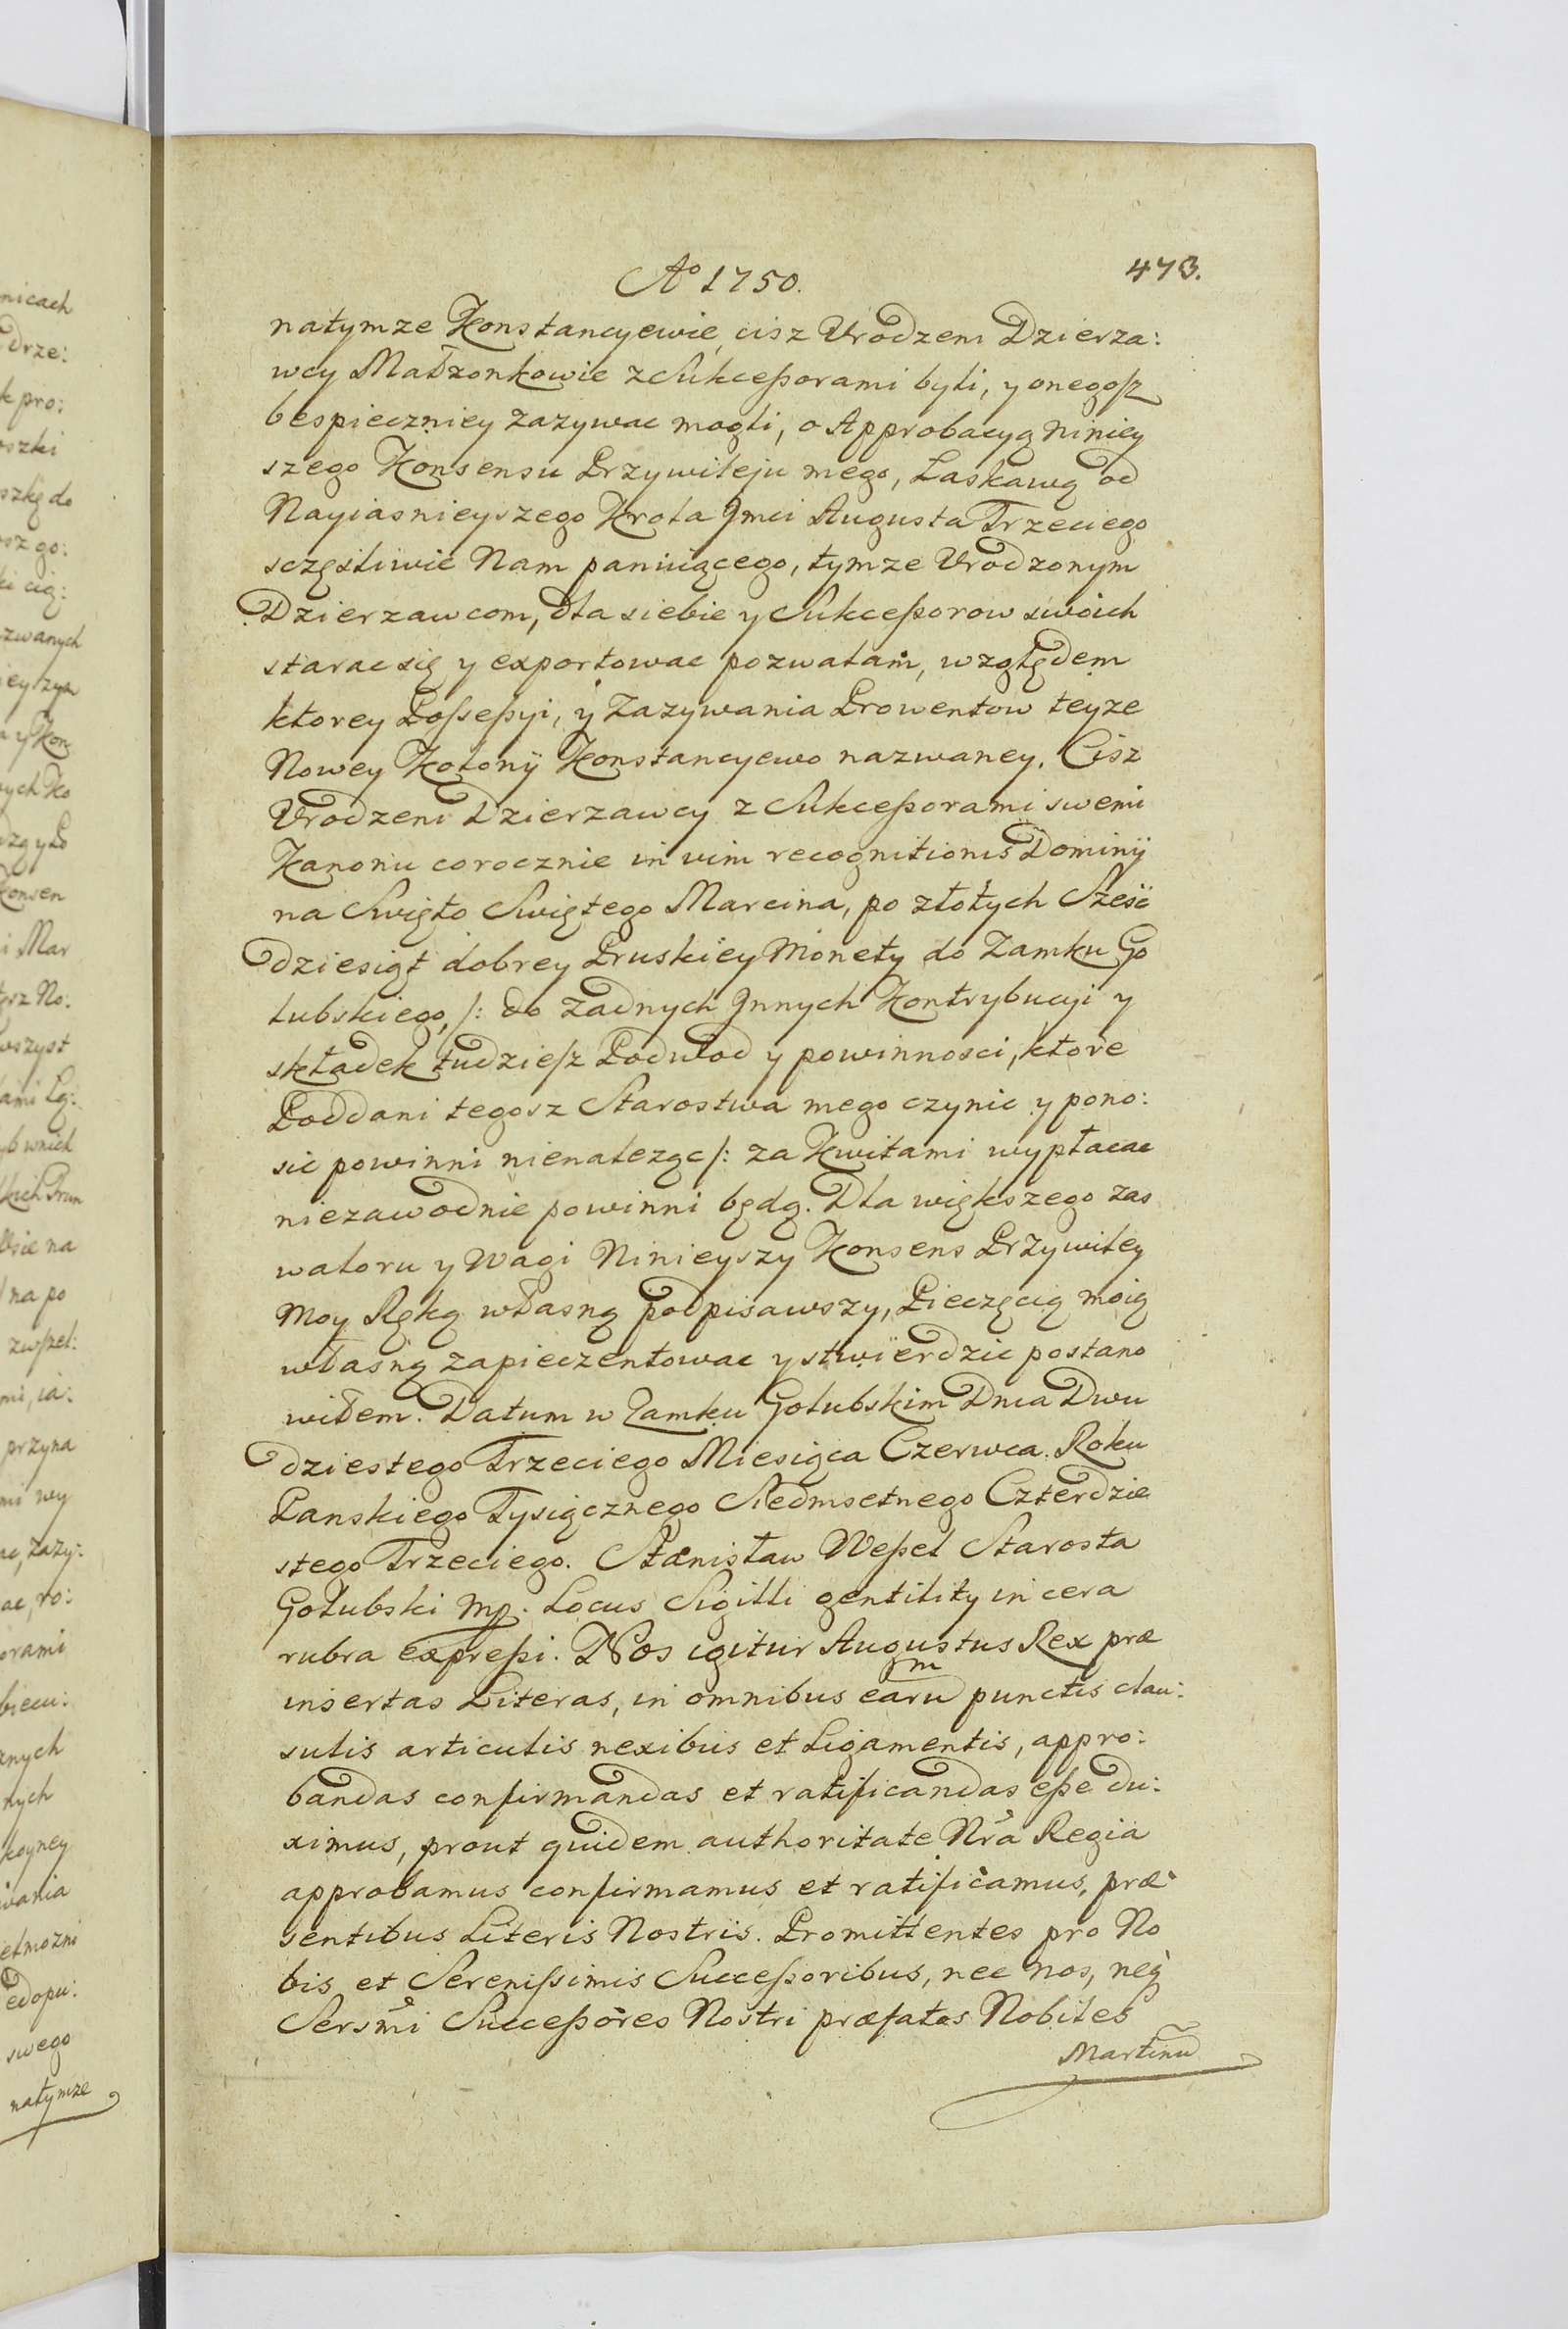 nicach
drze:
k pro:
oszki
szkę do
osz go:
ki cią:
zwanych
ieyszym
y Kon
ych Ko
dzą y Po
Konsen
i Mar
tosz No:
wszyst
ami Łą:
yb wnich
kich Grun
bsie na
na po
zwszel:
mi, ia:
przyna
mi wy
ac, Zazy:
ac, ro:
orami
biecu:
nych
nych
koyney
wania
ielmozni
edopu:
swego
natymze
Aº 1750.
473.
natymze Konstancyewie, cisz Urodzeni Dzierza:
wcy Małzonkowie z Sukceßorami byli, y onegosz
bespieczniey zazywac mogli, o Approbacyą Niniey
szego Konsensu Przywileju mego, Łaskawą od
Nayiasnieyszego Krola Jmci Augusta Trzeciego
sczęsliwie Nam panuiącego, tymze Urodzonym
Dzierzawcom, dla siebie y Sukceßorow swoich
starac się y exportowac pozwalam, względem
ktorey Possessyi, y Zazywania Prowentow teyze
Nowey Kolonÿ Konstancyewo nazwaney. Cisz
Urodzeni Dzierzawcy z Sukceßorami swemi
Kanonu corocznie in vim recognitionis Dominÿ
na Swięto Swiętego Marcina, po złotych Sześć
dziesiąt dobrey Pruskiey Monety do Zamku Go
lubskiego, /: do Zadnych Jnnych Kontrybucyi y
składek tudziesz Podwod y powinnosci, ktore
Poddani tegosz Starostwa mego czynic y pono:
sic powinni nienaleząc /: za Kwitami wypłacac
niezawodnie powinni będą. Dla większego zas
waloru y Wagi Ninieyszy Konsens Przywiley
Moy Ręką własną podpisawszy, Pieczęcią moią
własną zapieczentowac y stwierdzic postano
wiłem. Datum w Zamku Golubskim Dnia Dwu
dziestego Trzeciego Miesiąca Czerwca Roku
Panskiego Tysiącznego Siedmsetnego Czterdzie
stego Trzeciego. Stanisław Weßel Starosta
Golubski Mp. Locus Sigilli gentility in cera
rubra expreßi. Nos igitur Augustus Rex præ
insertas Literas, in omnibus earum punctis clau:
sulis articulis nexibus et Ligamentis, appro:
bandas confirmandas et ratificandas eße du:
ximus, prout quidem authoritate Nrã Regia
approbamus confirmamus et ratificamus, præ
sentibus Literis Nostris. Promittentes pro No
bis et Serenissimis Succeßoribus, nec Nos, neq
Sersmi Succeßores Nostri præfatos Nobiles
Martinũ